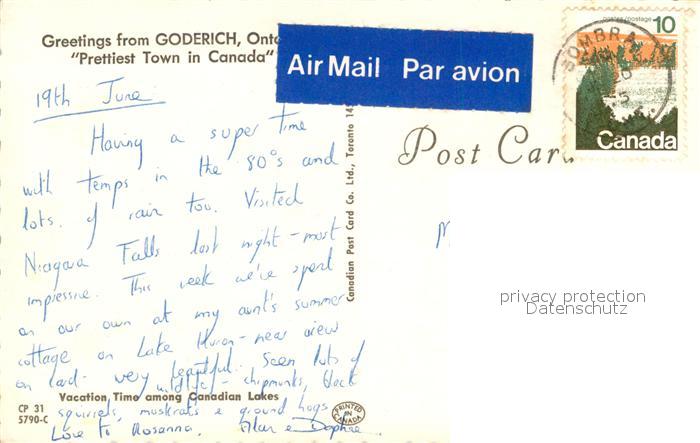 Greetings from GODERICH, Onta
"Prettiest Town in Canada"
Air Mail Par avion
postes/postage 10
Canada
SOMBRA
Post Car
19th June
Having a super time
with temps in the 80°s and
lots of rain too. Visited
Niagara Falls last night - most
impressive. This week we've spent
on our own at my aunt's summer
cottage on Lake Huron - near view
on card - very beautiful. Seen lots of
wildlife - chipmunks, black
squirrels, muskrats & ground hogs
Love to Rosanna. Alan & Daphne
Vacation Time among Canadian Lakes
CP 31
5790-C
PRINTED IN CANADA
Canadian Post Card Co. Ltd., Toronto 14
privacy protection
Datenschutz